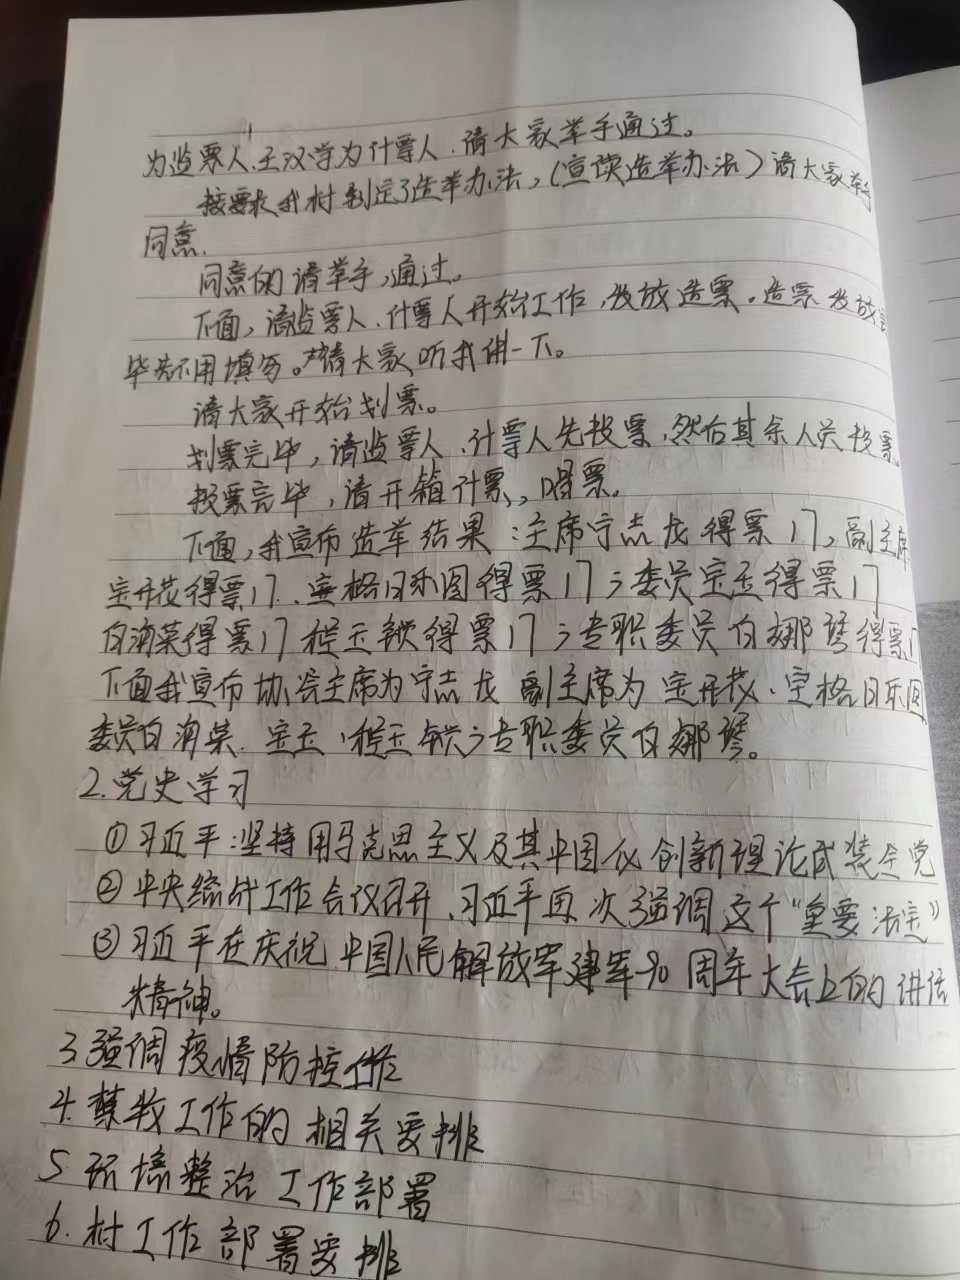 为监票人、王汉学为计票人,请大家举手通过。
按要求我村制定了选举办法,(宣读选举办法)请大家举手
同意。
同意的请举手,通过。
下面,请监票人、计票人开始工作,发放选票。选票发放完
毕先不用填写。请大家听我讲一下。
请大家开始划票。
划票完毕,请监票人、计票人先投票,然后其余人员投票。
投票完毕,请开箱计票,唱票。
下面,我宣布选举结果:主席宁志龙得票17,副主席
得票17、格日乐图得票17;委员宝玉得票17
白海菜得票17程玉锁得票17;专职委员白娜琴得票17
下面我宣布协会主席为宁志龙 副主席为 、格日乐图
委员白海菜、宝玉、程玉锁;专职委员白娜琴。
2.党史学习
①习近平:坚持用马克思主义及其中国化创新理论武装全党
②中央统战工作会议召开,习近平再次强调这个“重要法宝”
③习近平在庆祝中国人民解放军建军90周年大会上的讲话
精神。
3.强调疫情防控工作
4.禁牧工作的相关安排
5环境整治工作部署
6.村工作部署安排